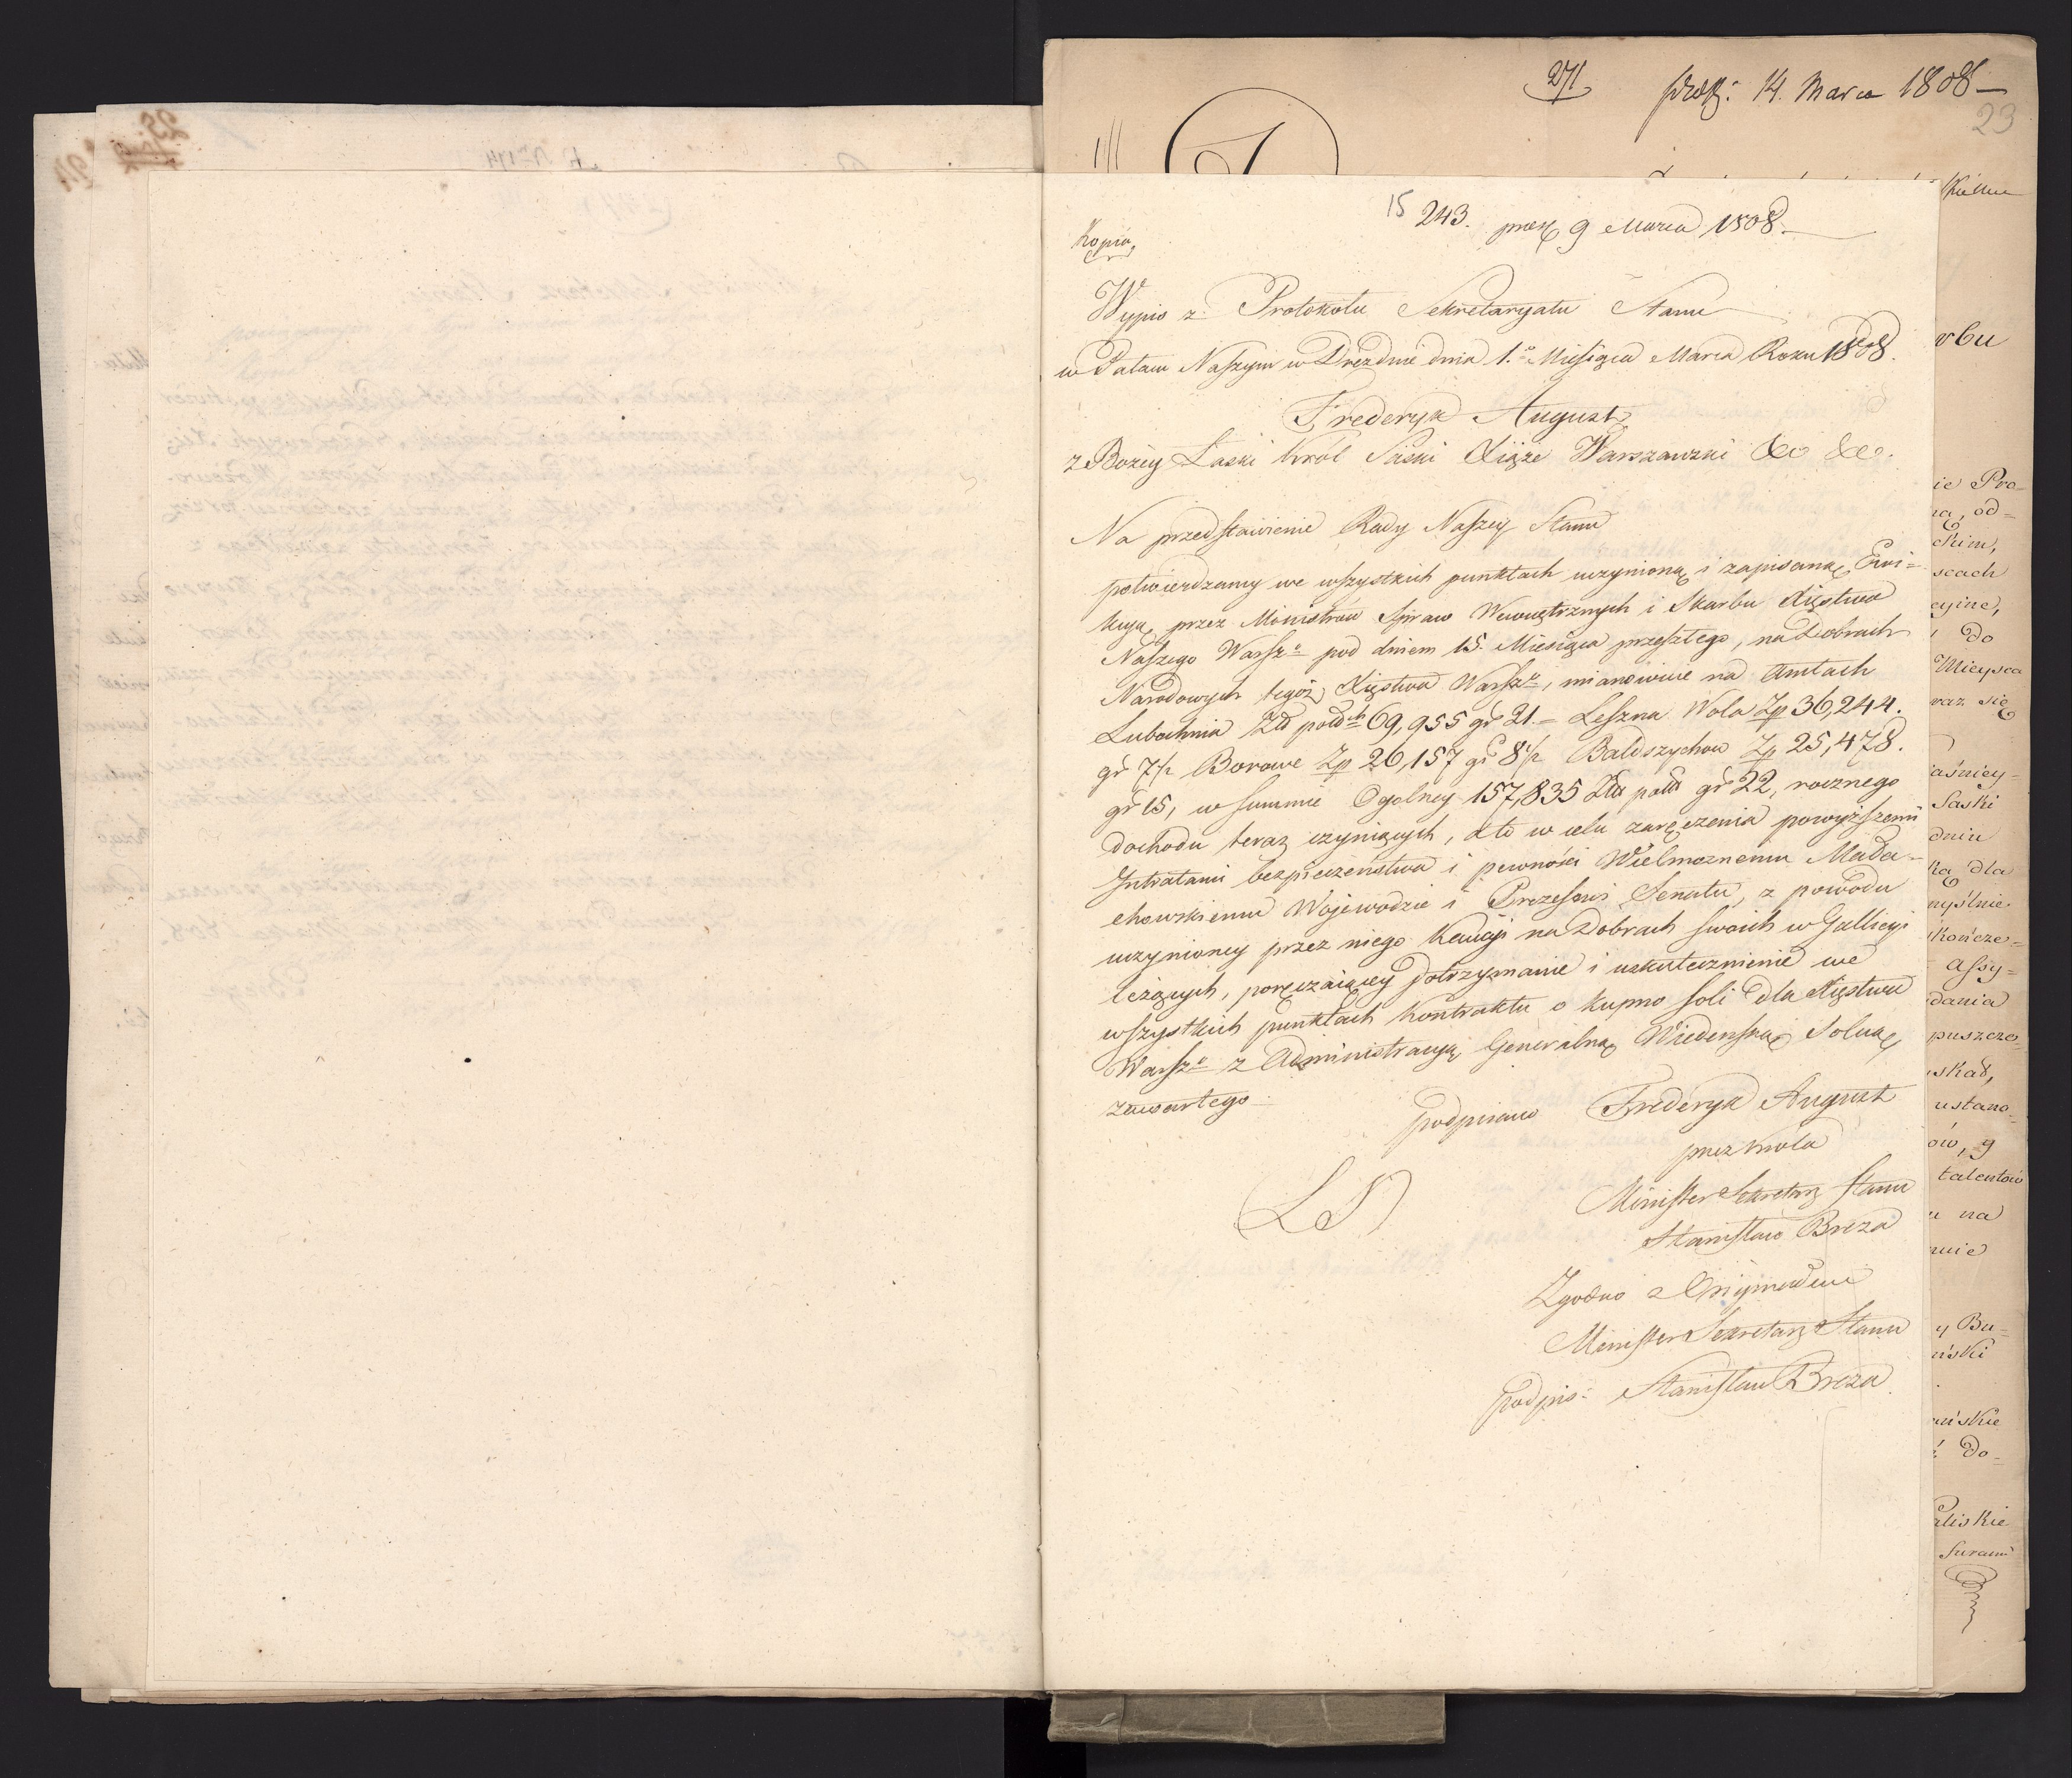 271. prez: 14. Marca 1808
23
15 243. prez 9 Marca 1808.
Kopia
Wypis z Protokołu Sekretaryatu Stanu
w Pałacu Naszym w Dreźnie dnia 1.º Miesiąca Marca Roku 1808.
Frederyk August
z Bożey Łaski Król Saski Xiąże Warszawski &c &c.
Na przedstawienie Rady Naszey Stanu
potwierdzamy we wszystkich punktach uczynioną i zapisaną Ewi=
kcyą przez Ministrów Spraw Wewnętrznych i Skarbu Xięstwa
Naszego Warszº pod dniem 15. Miesiąca przeszłego, na Dobrach
Narodowych tegoż Xięstwa Warszº, mianowicie na Amtach
Lubochnia Zł polsch 69,955 gr 21.= Leszna Wola Zp 36,244.
gr 7½ Borowe Zp 26,157 gr 8½ Baldszychow Zp 25,478.
gr 15, w summie Ogolney 157,835 Złł polł gr 22, rocznego
dochodu teraz czyniących, a to w celu zaręczenia powyższemi
Intratami bezpieczeństwa i pewności Wielmożnemu Mała=
chowskiemu Wojewodzie i Prezesowi Senatu, z powodu
uczynioney przez niego Kaucyi na Dobrach swoich w Gallicyi
leżących, poręczaiącey dotrzymanie i uskutecznienie we
wszystkich punktach Kontraktu o kupno soli dla Xięstwa
Warszº z Administracyą Generalną Wiedeńską Solną
zawartego.
podpisano Frederyk August
przez Króla
Minister Sekretarz Stanu
Stanisław Breza
LS
Zgodno z Oryginałem
Minister Sekretarz Stanu
podpis: Stanisław Breza
rbu
ie Pro=
na, od=
ckim,
scach
cyine,
do
Mieysca
raz się
aśniey=
Saski
dniu
ką dla
myślnie
kończe=
assy=
dania
puszcze=
skał,
ustano=
ów, g
talentów
u na
nie
y Bu=
ński
ańskie
do=
aliskie